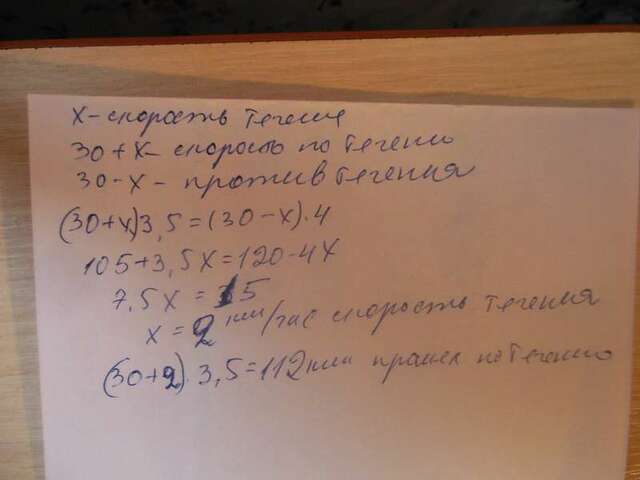 x - скорость течение
30 + x - скорость по течению
30 - x - против течения
(30+x)3,5=(30-x)·4
105+3,5x=120-4x
7,5x = 15
x = 2 км/час скорость течения
(30+2)·3,5=112 км прошел по течению